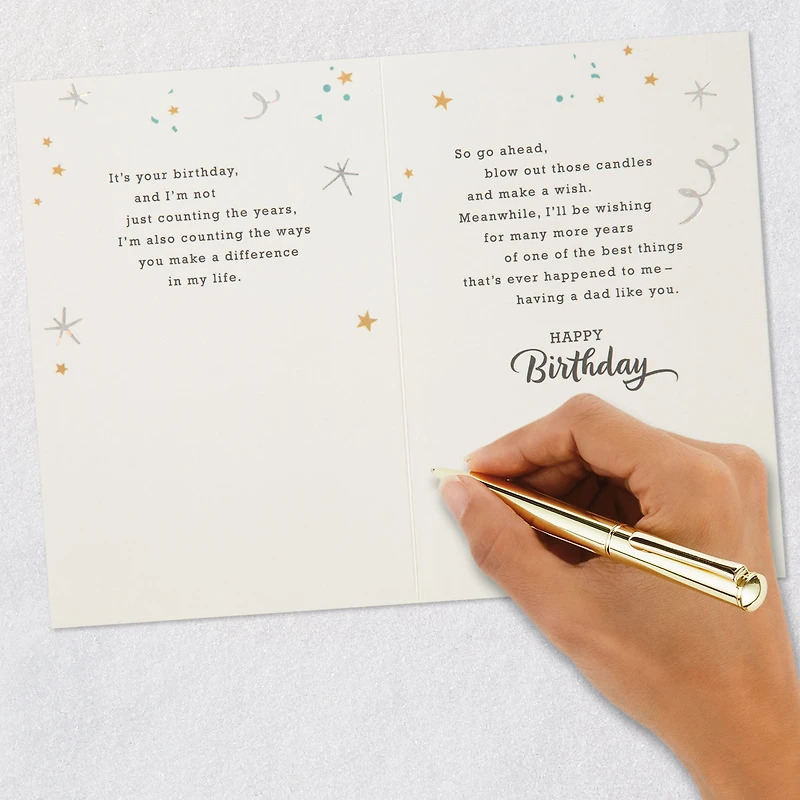 It's your birthday,
and I'm not
just counting the years,
I'm also counting the ways
you make a difference
in my life.
So go ahead,
blow out those candles
and make a wish.
Meanwhile, I'll be wishing
for many more years
of one of the best things
that's ever happened to me–
having a dad like you.
HAPPY
Birthday